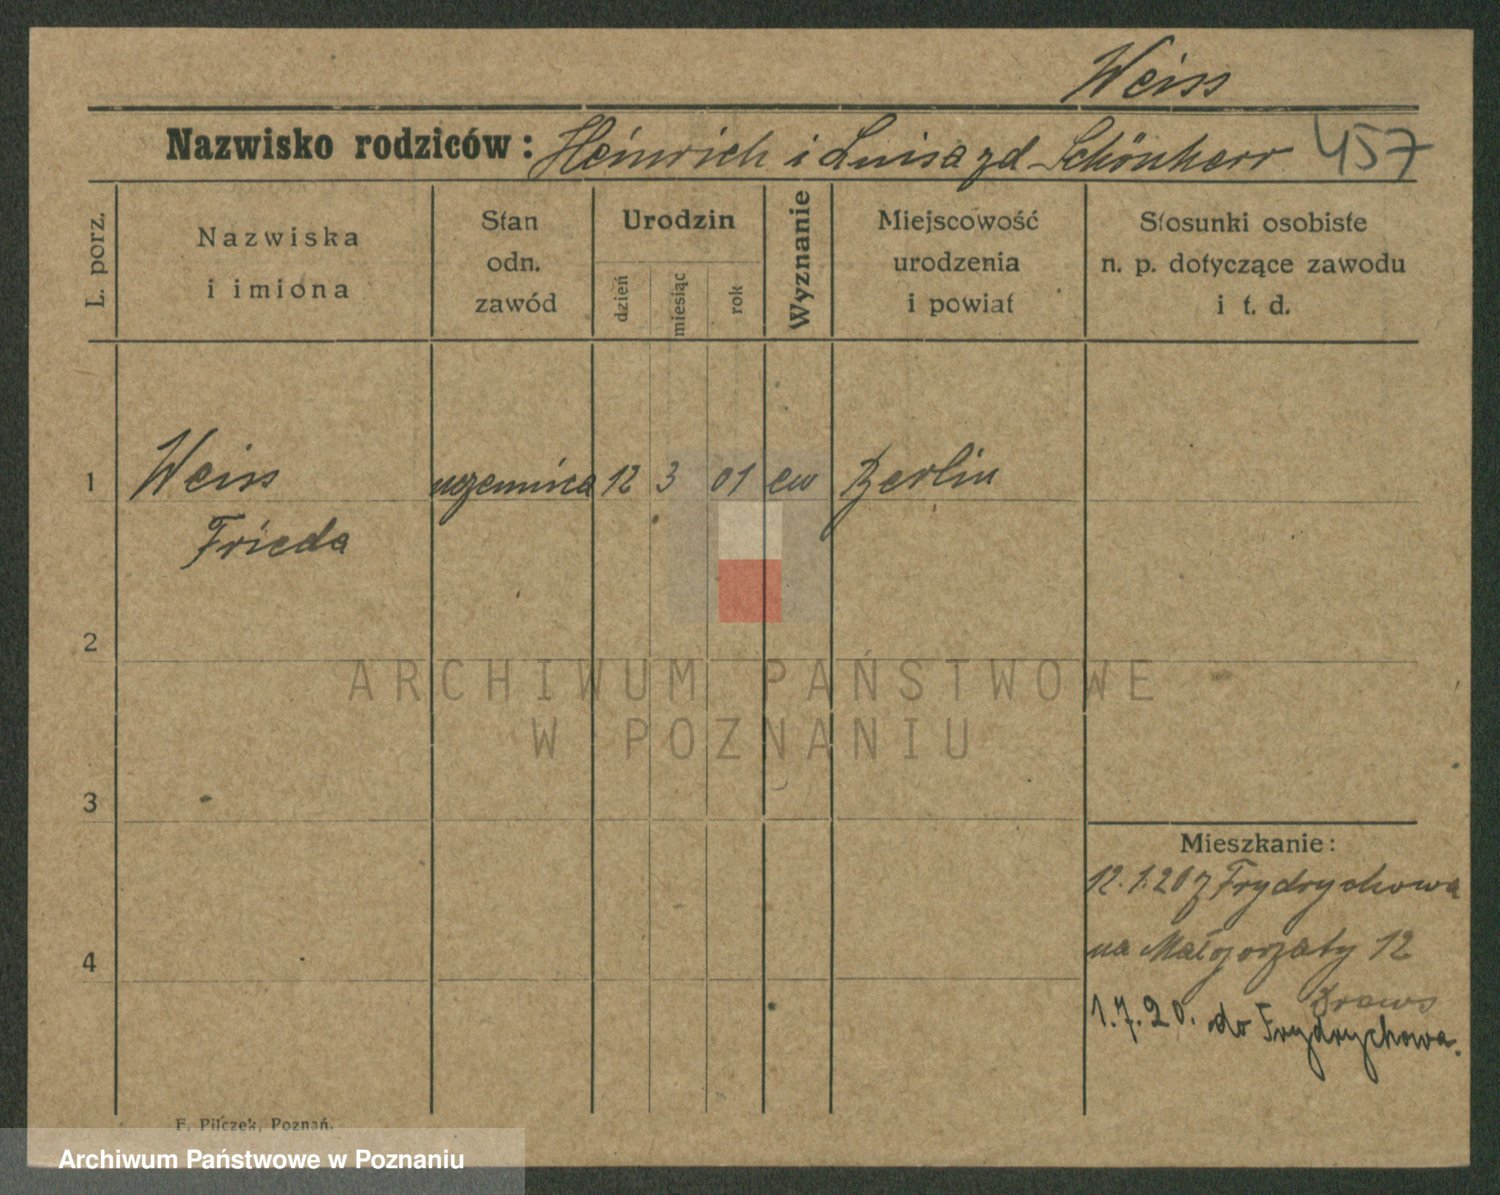 Weiss
Nazwisko rodziców: Heinrich i Luisa zd Schönherr 457
L. porz.
Nazwiska
i imiona
Stan
odn.
zawód
Urodzin
dzień
miesiąc
rok
Wyznanie
Miejscowość
urodzenia
i powiat
Stosunki osobiste
n. p. dotyczące zawodu
i t. d.
1 Weiss uczennica 12 3 01 ew Berlin
Frieda
2
ARCHIWUM PAŃSTWOWE
W POZNANIU
3
Mieszkanie:
12.1.20 z Frydrychowa
4
na Małgorzaty 12
1.7.20. do Frydrychowa.
F. Pilczek, Poznań.
Archiwum Państwowe w Poznaniu